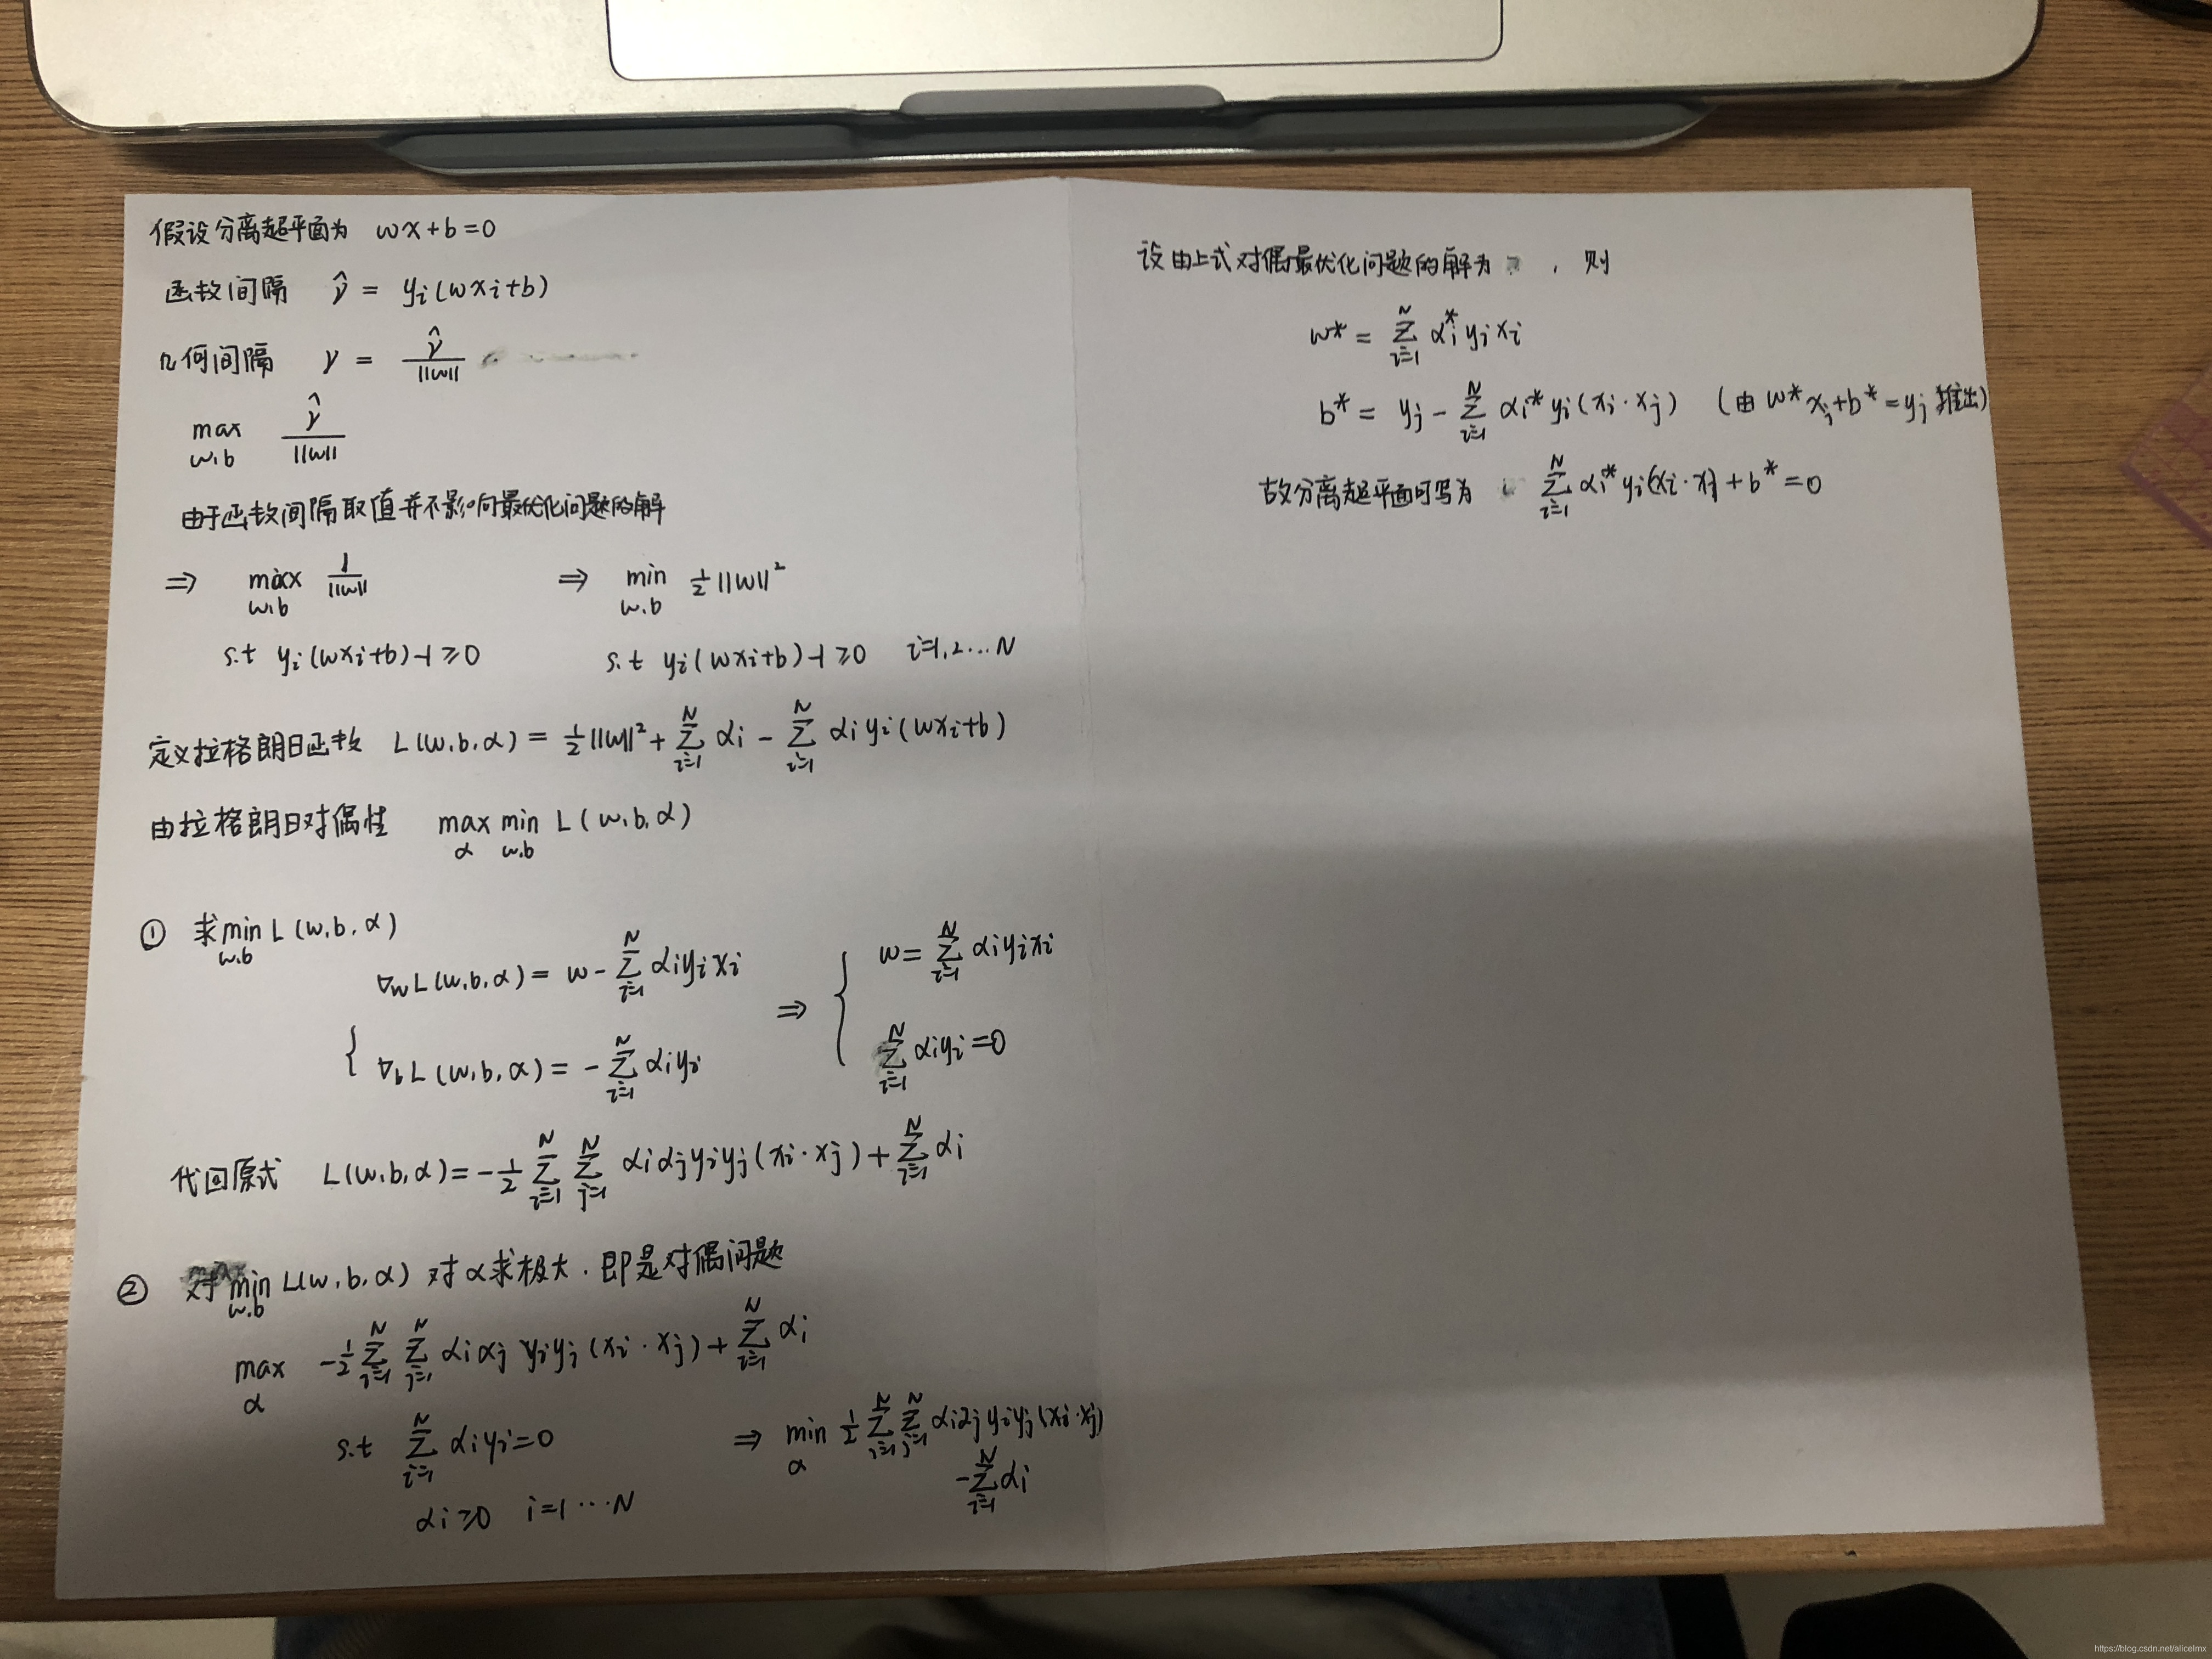 假设分离超平面为 wx+b=0
函数间隔 γ̂ = yi(wxi+b)
几何间隔 γ = γ̂/||w||
max w,b γ̂/||w||
由于函数间隔取值并不影响最优化问题的解
⇒ max w,b 1/||w|| ⇒ min w,b ½||w||²
s.t yi(wxi+b)-1≥0 s.t yi(wxi+b)-1≥0 i=1,2...N
定义拉格朗日函数 L(w,b,α) = ½||w||² + Σ_{i=1}^{N} αi - Σ_{i=1}^{N} αi yi(wxi+b)
由拉格朗日对偶性 max α min w,b L(w,b,α)
① 求 min w,b L(w,b,α)
∇wL(w,b,α) = w - Σ_{i=1}^{N} αiyixi ⇒ { w = Σ_{i=1}^{N} αiyixi
{ ∇bL(w,b,α) = - Σ_{i=1}^{N} αiyi Σ_{i=1}^{N} αiyi=0
代回原式 L(w,b,α) = -½ Σ_{i=1}^{N} Σ_{j=1}^{N} αiαjyiyj(xi·xj) + Σ_{i=1}^{N} αi
② 对 min w,b L(w,b,α) 对α求极大,即是对偶问题
max α -½ Σ_{i=1}^{N} Σ_{j=1}^{N} αiαjyiyj(xi·xj) + Σ_{i=1}^{N} αi
s.t Σ_{i=1}^{N} αiyi=0 ⇒ min α ½ Σ_{i=1}^{N} Σ_{j=1}^{N} αiαjyiyj(xi·xj)
-Σ_{i=1}^{N} αi
αi≥0 i=1...N
设由上式对偶最优化问题的解为 , 则
w* = Σ_{i=1}^{N} αi* yi xi
b* = yj - Σ_{i=1}^{N} αi* yi(xi·xj) (由 w*xj+b*=yj 推出)
故分离超平面可写为 Σ_{i=1}^{N} αi* yi(xi·x)+b*=0
https://blog.csdn.net/alicelmx